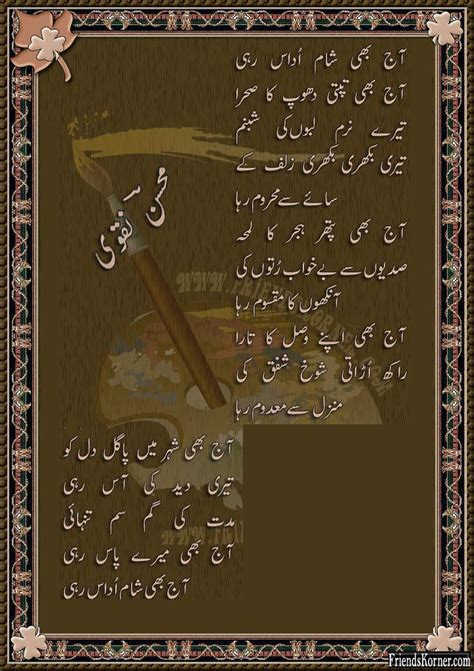 آج بھی شام اُداس رہی
آج بھی تپتی دھوپ کا صحرا
تیرے نرم لبوں کی شبنم
تیری بکھری بکھری زلف کے
سائے سے محروم رہا
آج بھی پتھر ہجر کا لمحہ
صدیوں سے بے خواب رُتوں کی
آنکھوں کا مقسوم رہا
آج بھی اپنے وصل کا تارا
راکھ اُڑاتی شوخ شفق کی
منزل سے معدوم رہا
آج بھی شہر میں پاگل دل کو
تیری دید کی آس رہی
مدت کی گم سم تنہائی
آج بھی میرے پاس رہی
آج بھی شام اُداس رہی
محسن نقوی
FriendsKorner.com